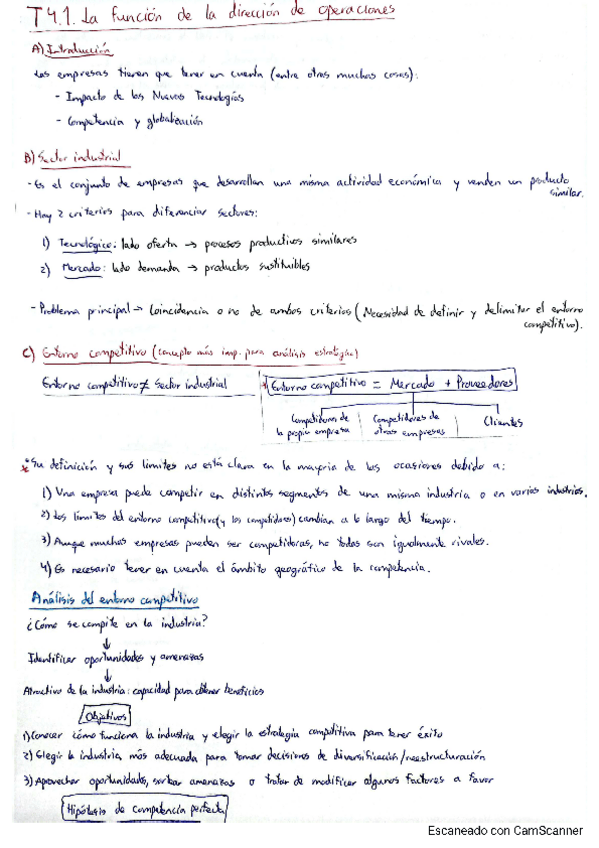 T 4.1. La función de la dirección de operaciones
A) Introducción
Las empresas tienen que tener en cuenta (entre otras muchas cosas):
- Impacto de las Nuevas Tecnologías
- Competencia y globalización
B) Sector industrial
- Es el conjunto de empresas que desarrollan una misma actividad económica y venden un producto
similar.
- Hay 2 criterios para diferenciar sectores:
1) Tecnológico: lado oferta → procesos productivos similares
2) Mercado: lado demanda → productos sustituibles
- Problema principal → Coincidencia o no de ambos criterios (Necesidad de definir y delimitar el entorno
competitivo).
C) Entorno competitivo (concepto más imp. para análisis estratégico)
Entorno competitivo ≠ Sector industrial
* Entorno competitivo = Mercado + Proveedores
Competidores de
la propia empresa
Competidores de
otras empresas
Clientes
* Su definición y sus límites no está clara en la mayoría de las ocasiones debido a:
1) Una empresa puede competir en distintos segmentos de una misma industria o en varias industrias.
2) Los límites del entorno competitivo (y los competidores) cambian a lo largo del tiempo.
3) Aunque muchas empresas pueden ser competidoras, no todas son igualmente rivales.
4) Es necesario tener en cuenta el ámbito geográfico de la competencia.
Análisis del entorno competitivo
¿Cómo se compite en la industria?
↓
Identificar oportunidades y amenazas
↓
Atractivo de la industria: capacidad para obtener beneficios
Objetivos
1) Conocer cómo funciona la industria y elegir la estrategia competitiva para tener éxito
2) Elegir la industria más adecuada para tomar decisiones de diversificación/reestructuración
3) Aprovechar oportunidades, evitar amenazas o tratar de modificar algunos factores a favor
Hipótesis de competencia perfecta
Escaneado con CamScanner